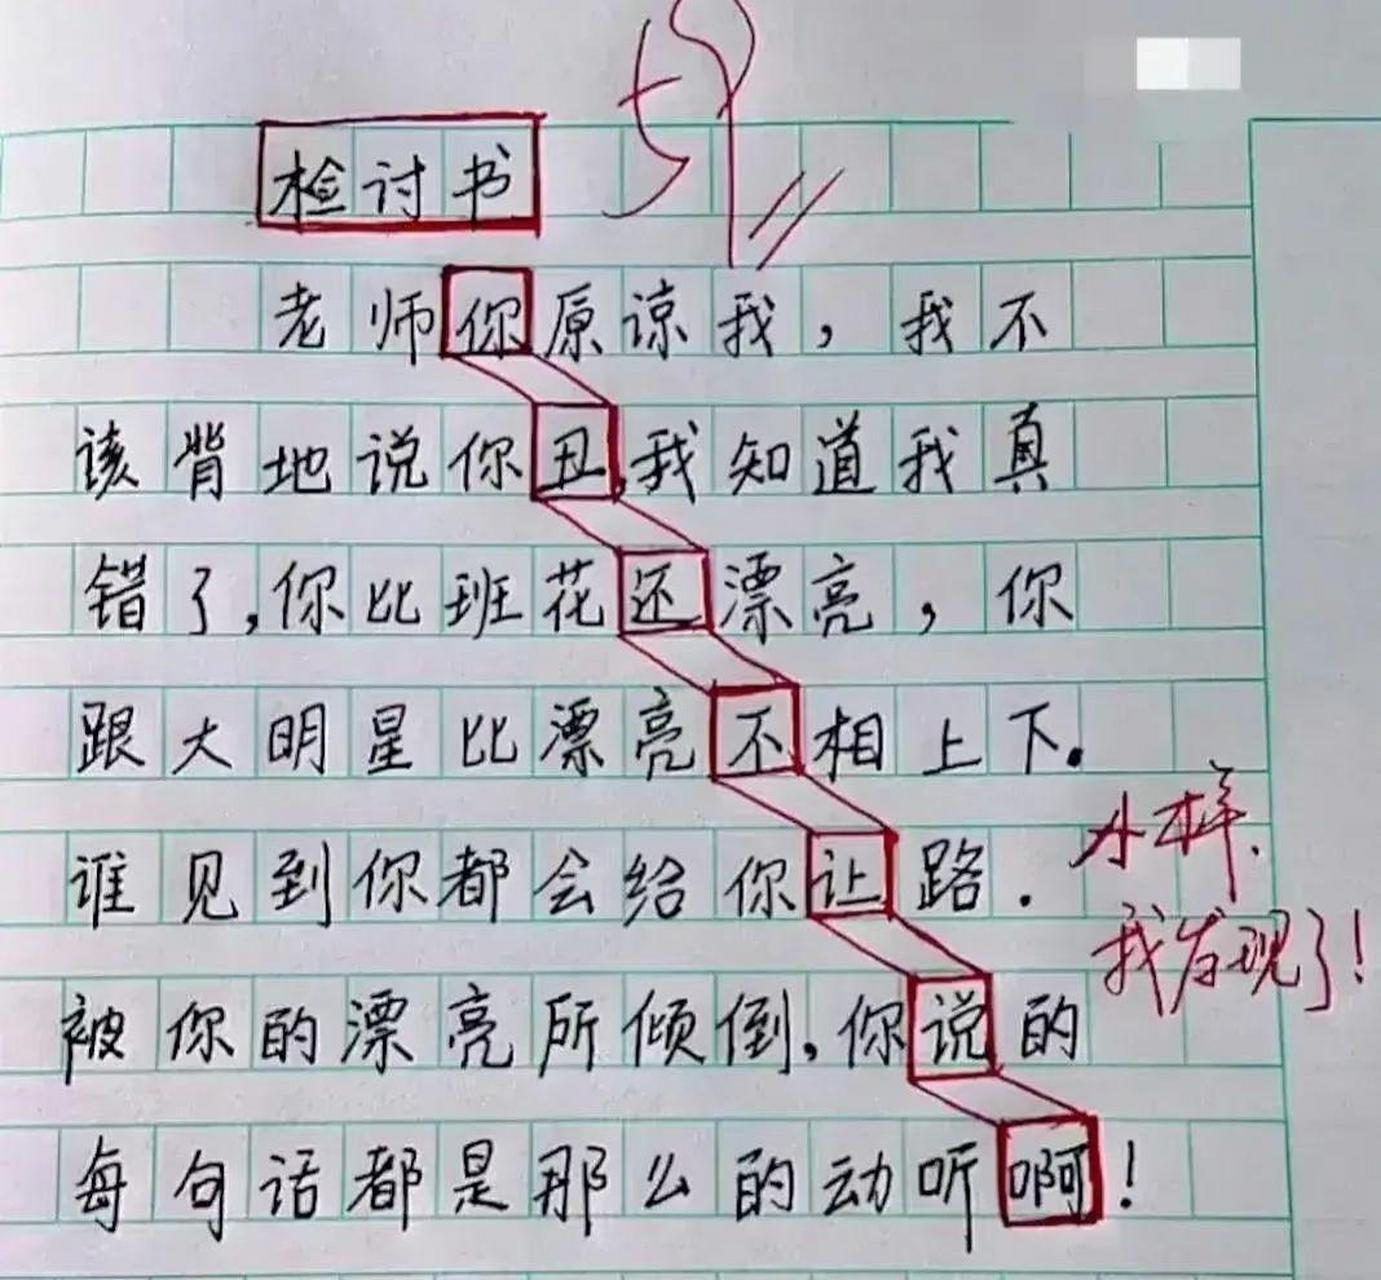 检讨书
老师你原谅我，我不
该背地说你丑，我知道我真
错了，你比班花还漂亮，你
跟大明星比漂亮不相上下。
谁见到你都会给你让路．
小样．
我发现了！
被你的漂亮所倾倒，你说的
每句话都是那么的动听啊！